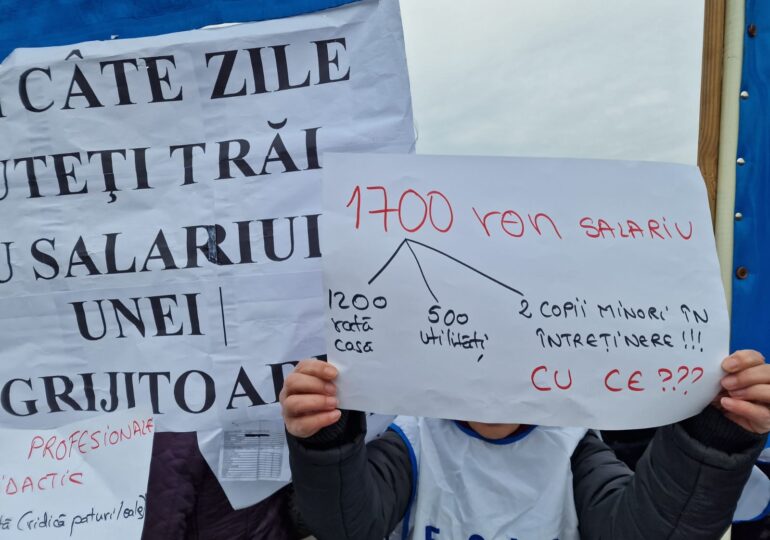 CÂTE ZILE
UTEŢI TRĂI
U SALARIUL
UNEI
GRIJITOARE
1700 ron SALARIU
1200
rată
casă
500
utilități
2 COPII MINORI ÎN
ÎNTREȚINERE!!!
CU CE???
PROFESIONALE
DACTIC
(ridică paturi/